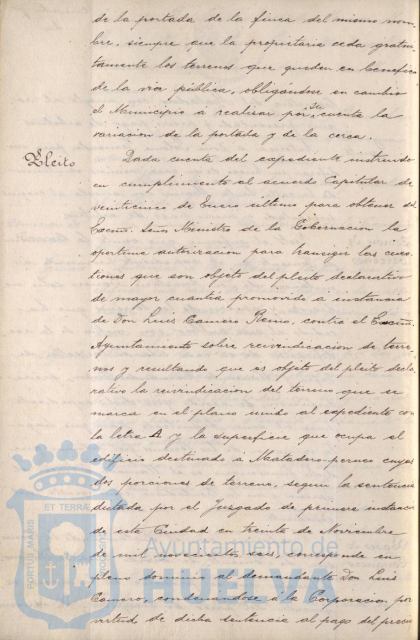 de la portada de la finca del mismo nom-
bre, siempre que la propietaria ceda gratui-
tamente los terrenos que queden en beneficio
de la via pública, obligándose en cambio
el Municipio á realizar por su cuenta la
variacion de la portada y de la cerca.
Pleito
Dada cuenta del expediente instruido
en cumplimiento al acuerdo Capitular de
veinticinco de Enero último para obtener del
Excmo. Señor Ministro de la Gobernacion la
oportuna autorizacion para transigir las cues-
tiones que son objeto del pleito declarativo
de mayor cuantía promovido á instancia
de Don Luis Camero contra el Excmo.
Ayuntamiento sobre reivindicacion de terre-
nos y resultando que es objeto del pleito decla-
rativo la reivindicacion del terreno que se
marca en el plano unido al expediente con
la letra A y la superficie que ocupa el
edificio destinado á Matadero perneo cuyas
dos porciones de terreno, segun la sentencia
dictada por el Juzgado de primera instancia
de esta Ciudad en treinta de Noviembre
de mil novecientos seis, corresponde en
pleno dominio al demandante Don Luis
Camero, condenándose á la Corporacion por
virtud de dicha sentencia al pago del precio
PORTUS MARIS ET TERRAE
Ayuntamiento de
HUELVA